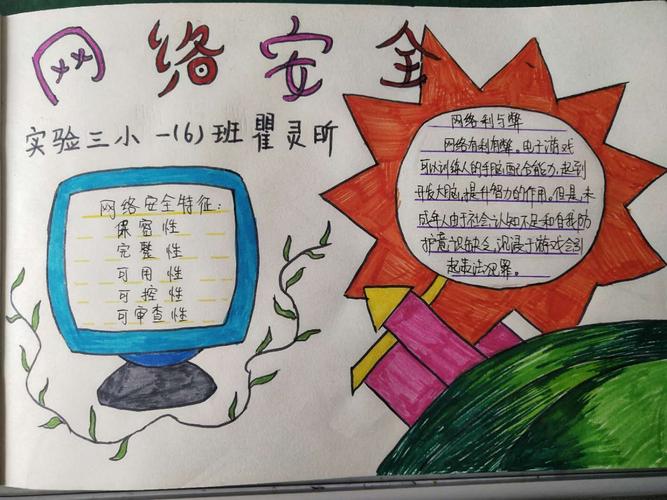 网络安全
实验三小一(6)班瞿灵昕
网络安全特征:
保密性
完整性
可用性
可控性
可审查性
网络利与弊
网络有利有弊。电子游戏
可以训练人的手脑配合能力,起到
开发大脑,提升智力的作用。但是,未
成年人由于社会认知不足和自我防
护意识缺乏,沉浸于游戏会引
起违法犯罪。